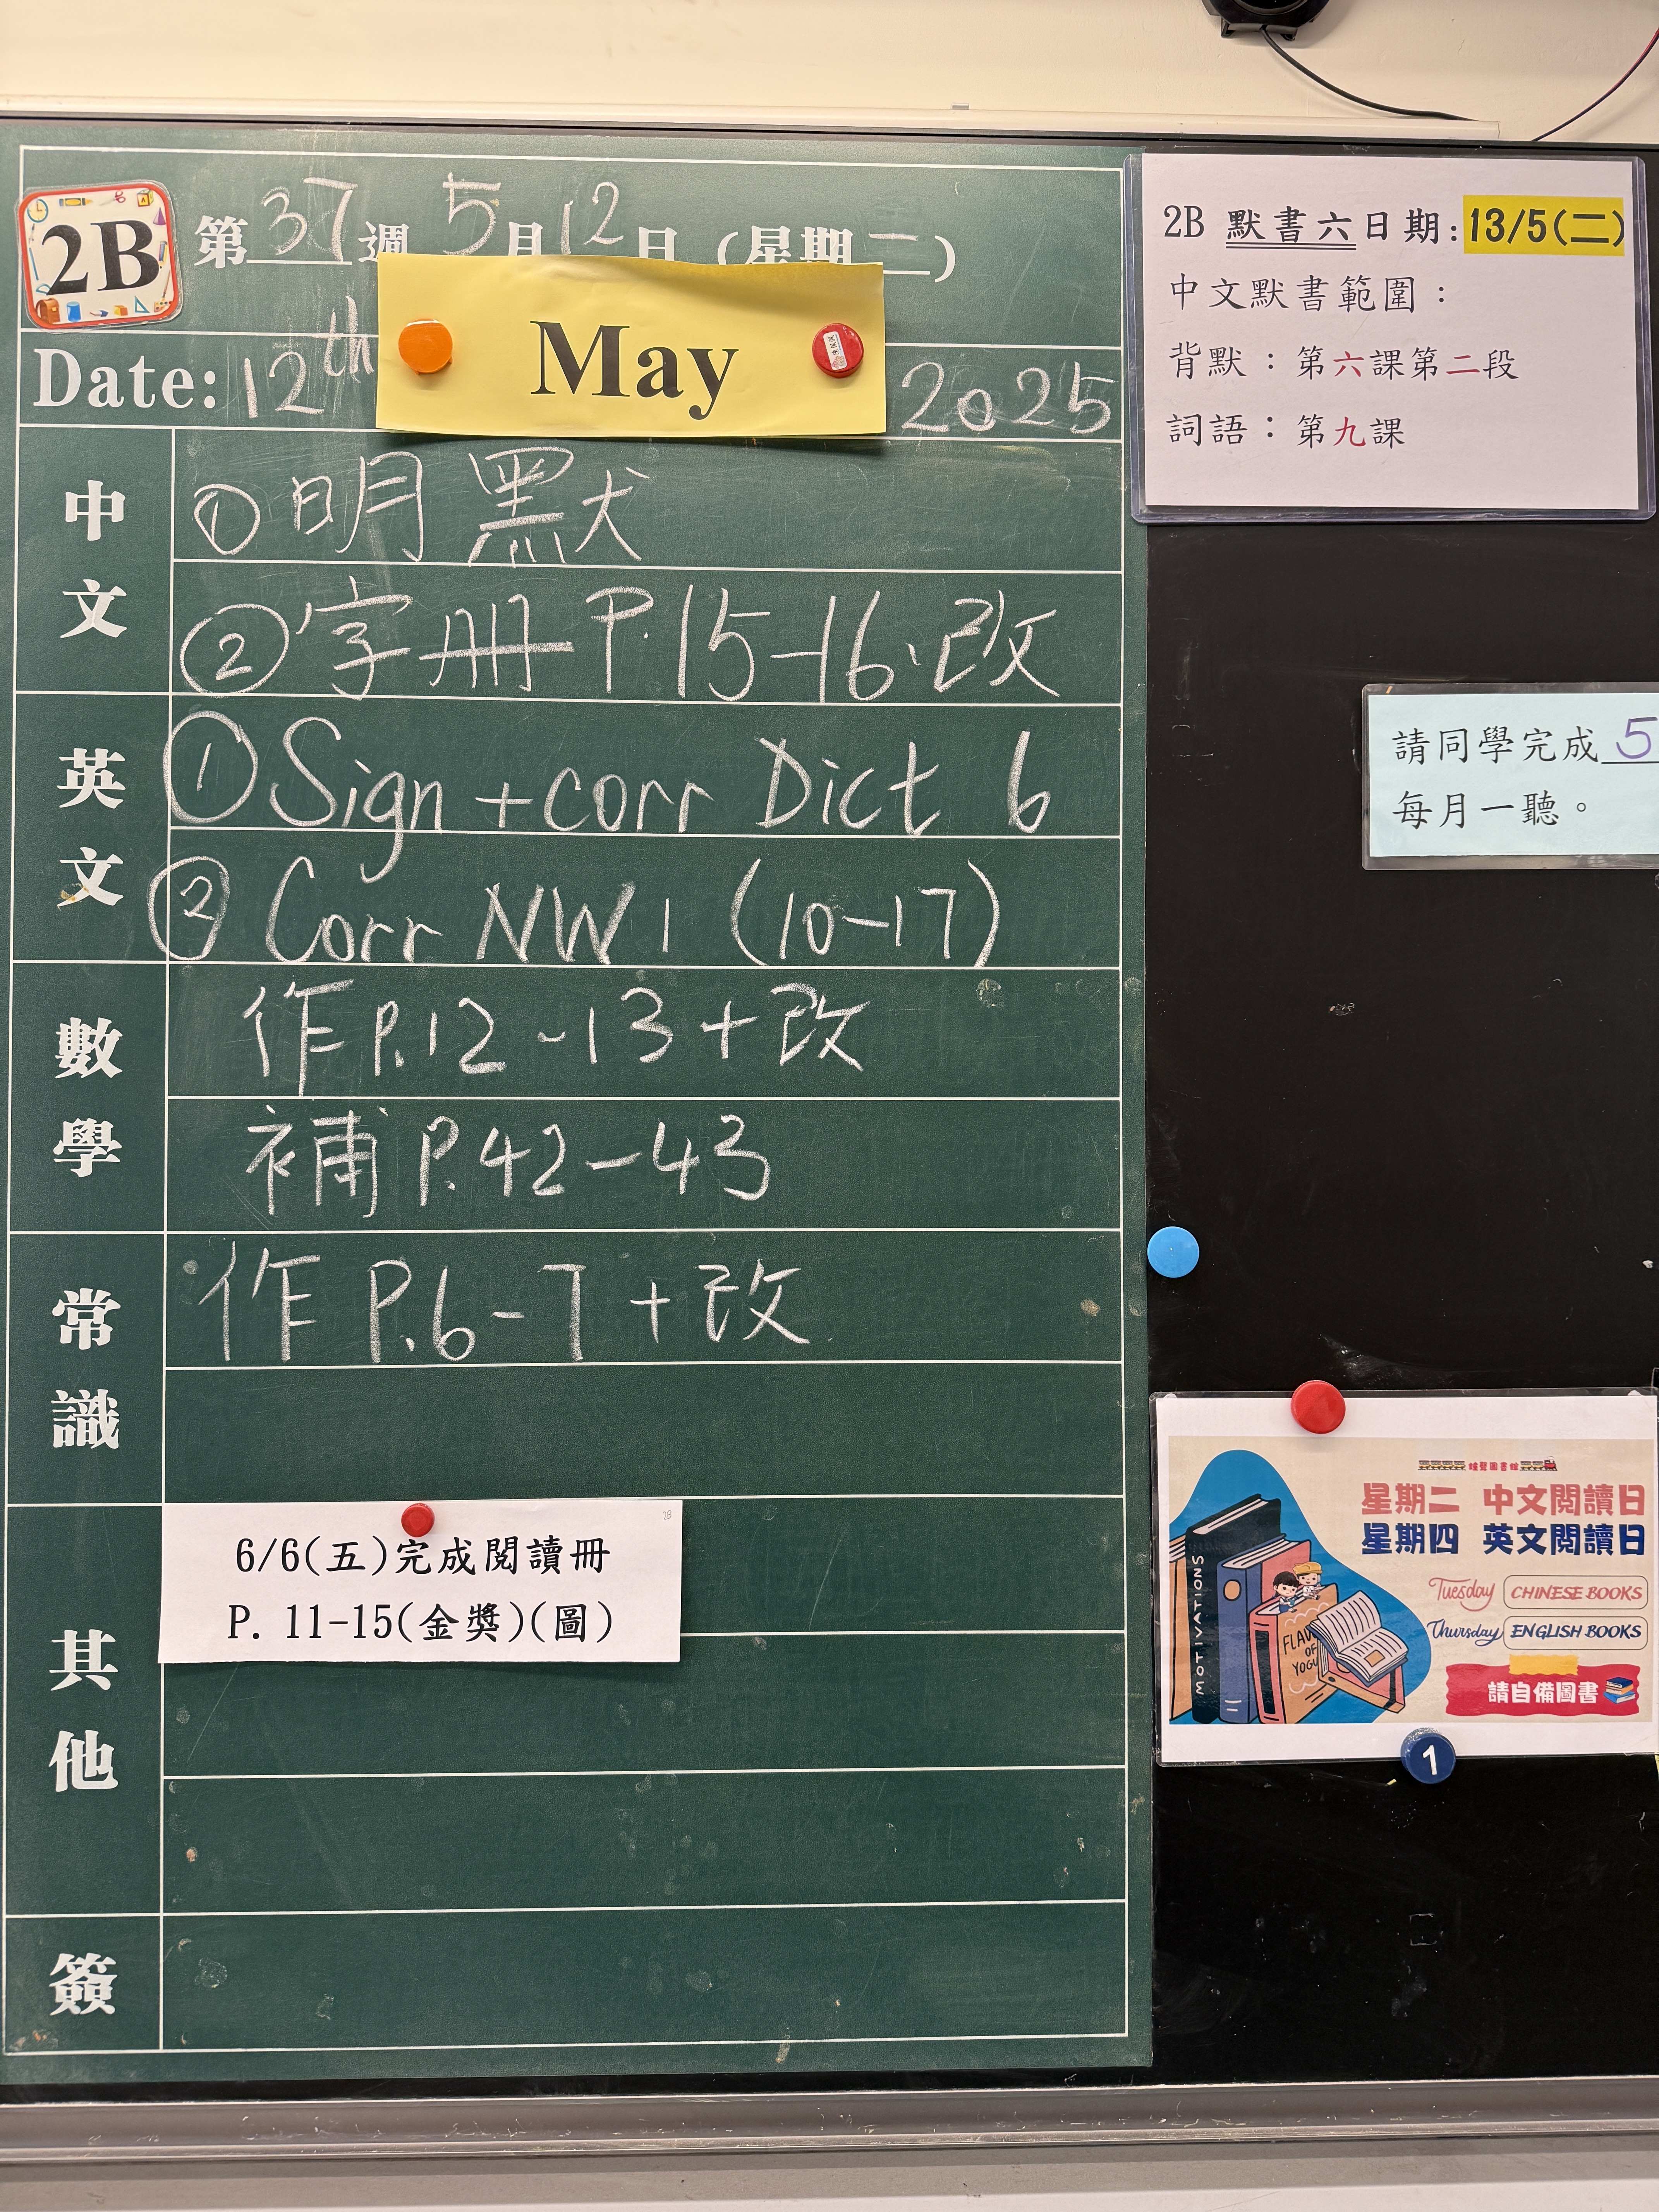 2B
第37週 5月12日 (星期二)
Date: 12th May 2025
中文
①明默
②字冊P.15-16.改
英文
① Sign + corr Dict 6
② Corr NW1 (10-17)
數學
作P.12-13+改
補P.42-43
常識
作P.6-7+改
其他
2B
6/6(五)完成閱讀冊
P. 11-15(金獎)(圖)
簽
2B 默書六日期:13/5(二)
中文默書範圍:
背默:第六課第二段
詞語:第九課
請同學完成5
每月一聽。
圖書館
星期二 中文閱讀日
星期四 英文閱讀日
Tuesday CHINESE BOOKS
Thursday ENGLISH BOOKS
請自備圖書
MOTIVATIONS
FLAV
OF
YOGU
1